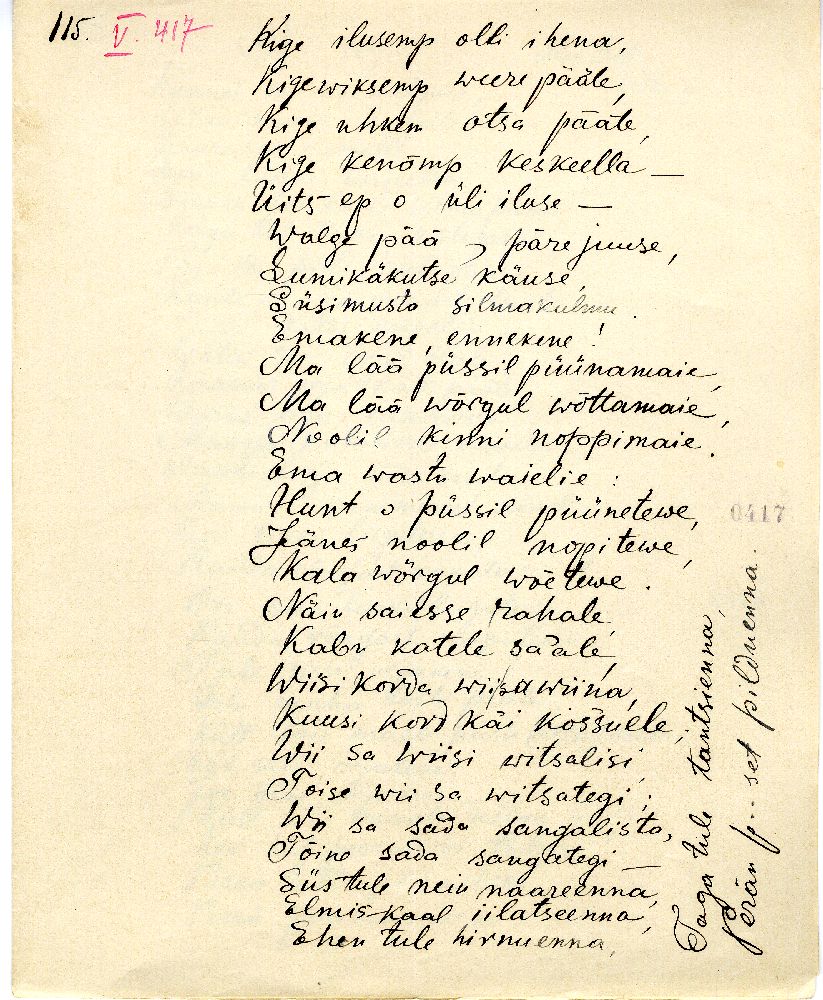 115. V. 417
Kige ilusemp olli ihena,
Kigewiksemp weere pääle,
Kige uhkem otsa pääle,
Kige kenämp keskeella —
Üits ep o üli iluse —
Walge pää, päre juuse,
Lumikäkutse käuse,
Süsimusta silmakulmu.
Emakene, ennekene!
Ma lää püssil püünamaie,
Ma lää wõrgul wõttamaie,
Noolil kinni noppimaie.
Ema wastu waielie:
Hunt o püssil püünetewe,
0417
Jänes noolil nopitewe,
Kala wõrgul wõetewe.
Näin saiesse rahale,
Kabu katele sääle,
Wiisi korda wiisa wiina,
Kuusi kord käi kossuele;
Wii sa wiisi witsalisi,
Toise wii sa witsategi;
Wii sa sada sangalista,
Tõine sada sangategi —
Siis tule nein naareenna,
Elmiskaal iilatseenna,
Ehen tule hirnuenna,
Taga tule tantsienna,
Perän p.. set pilduenna.